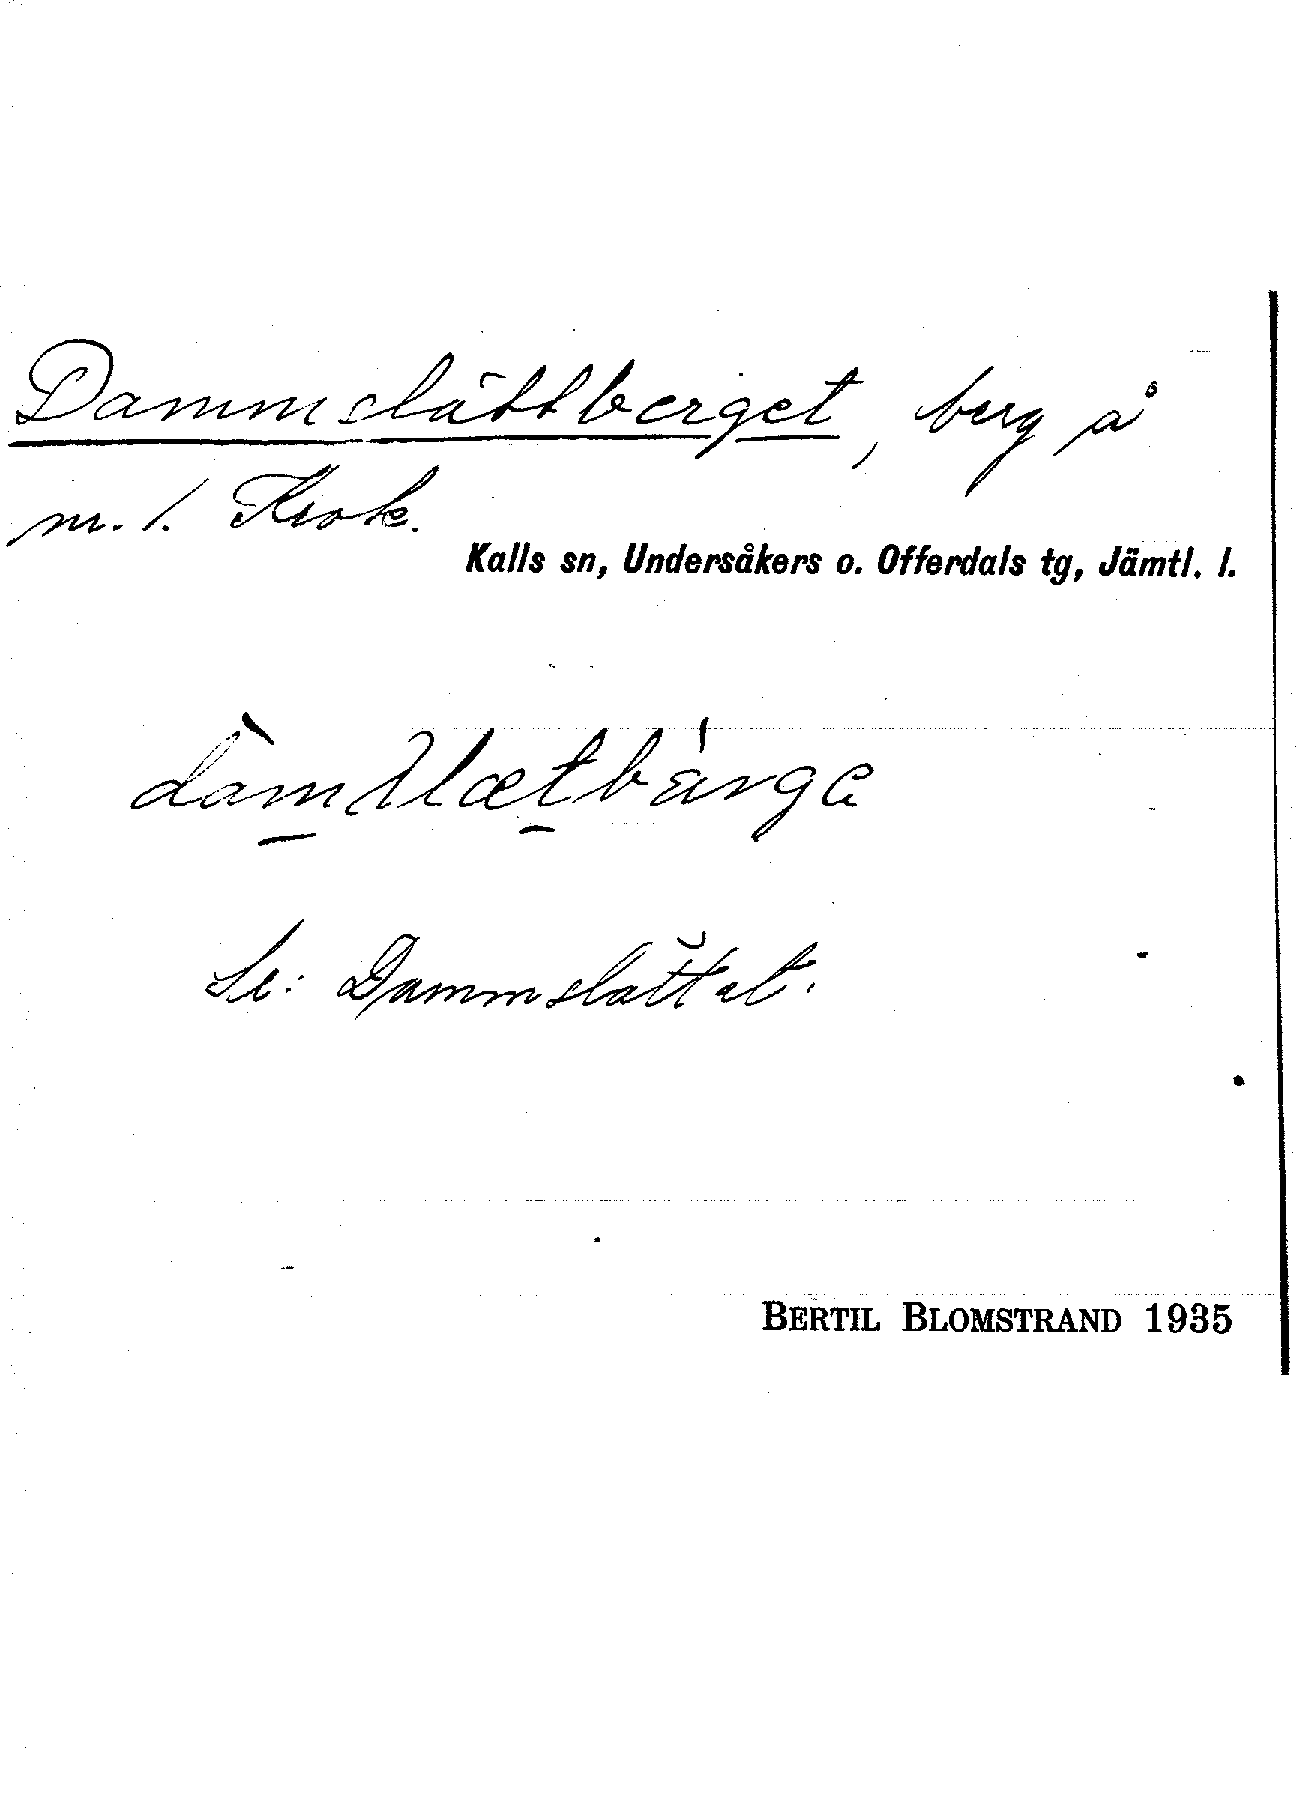 Dammslåttberget, berg å
nr. 1. Krok.
Kalls sn, Undersåkers o. Offerdals tg, Jämtl. l.
Se: Dammslåttet.
BERTIL BLOMSTRAND 1935